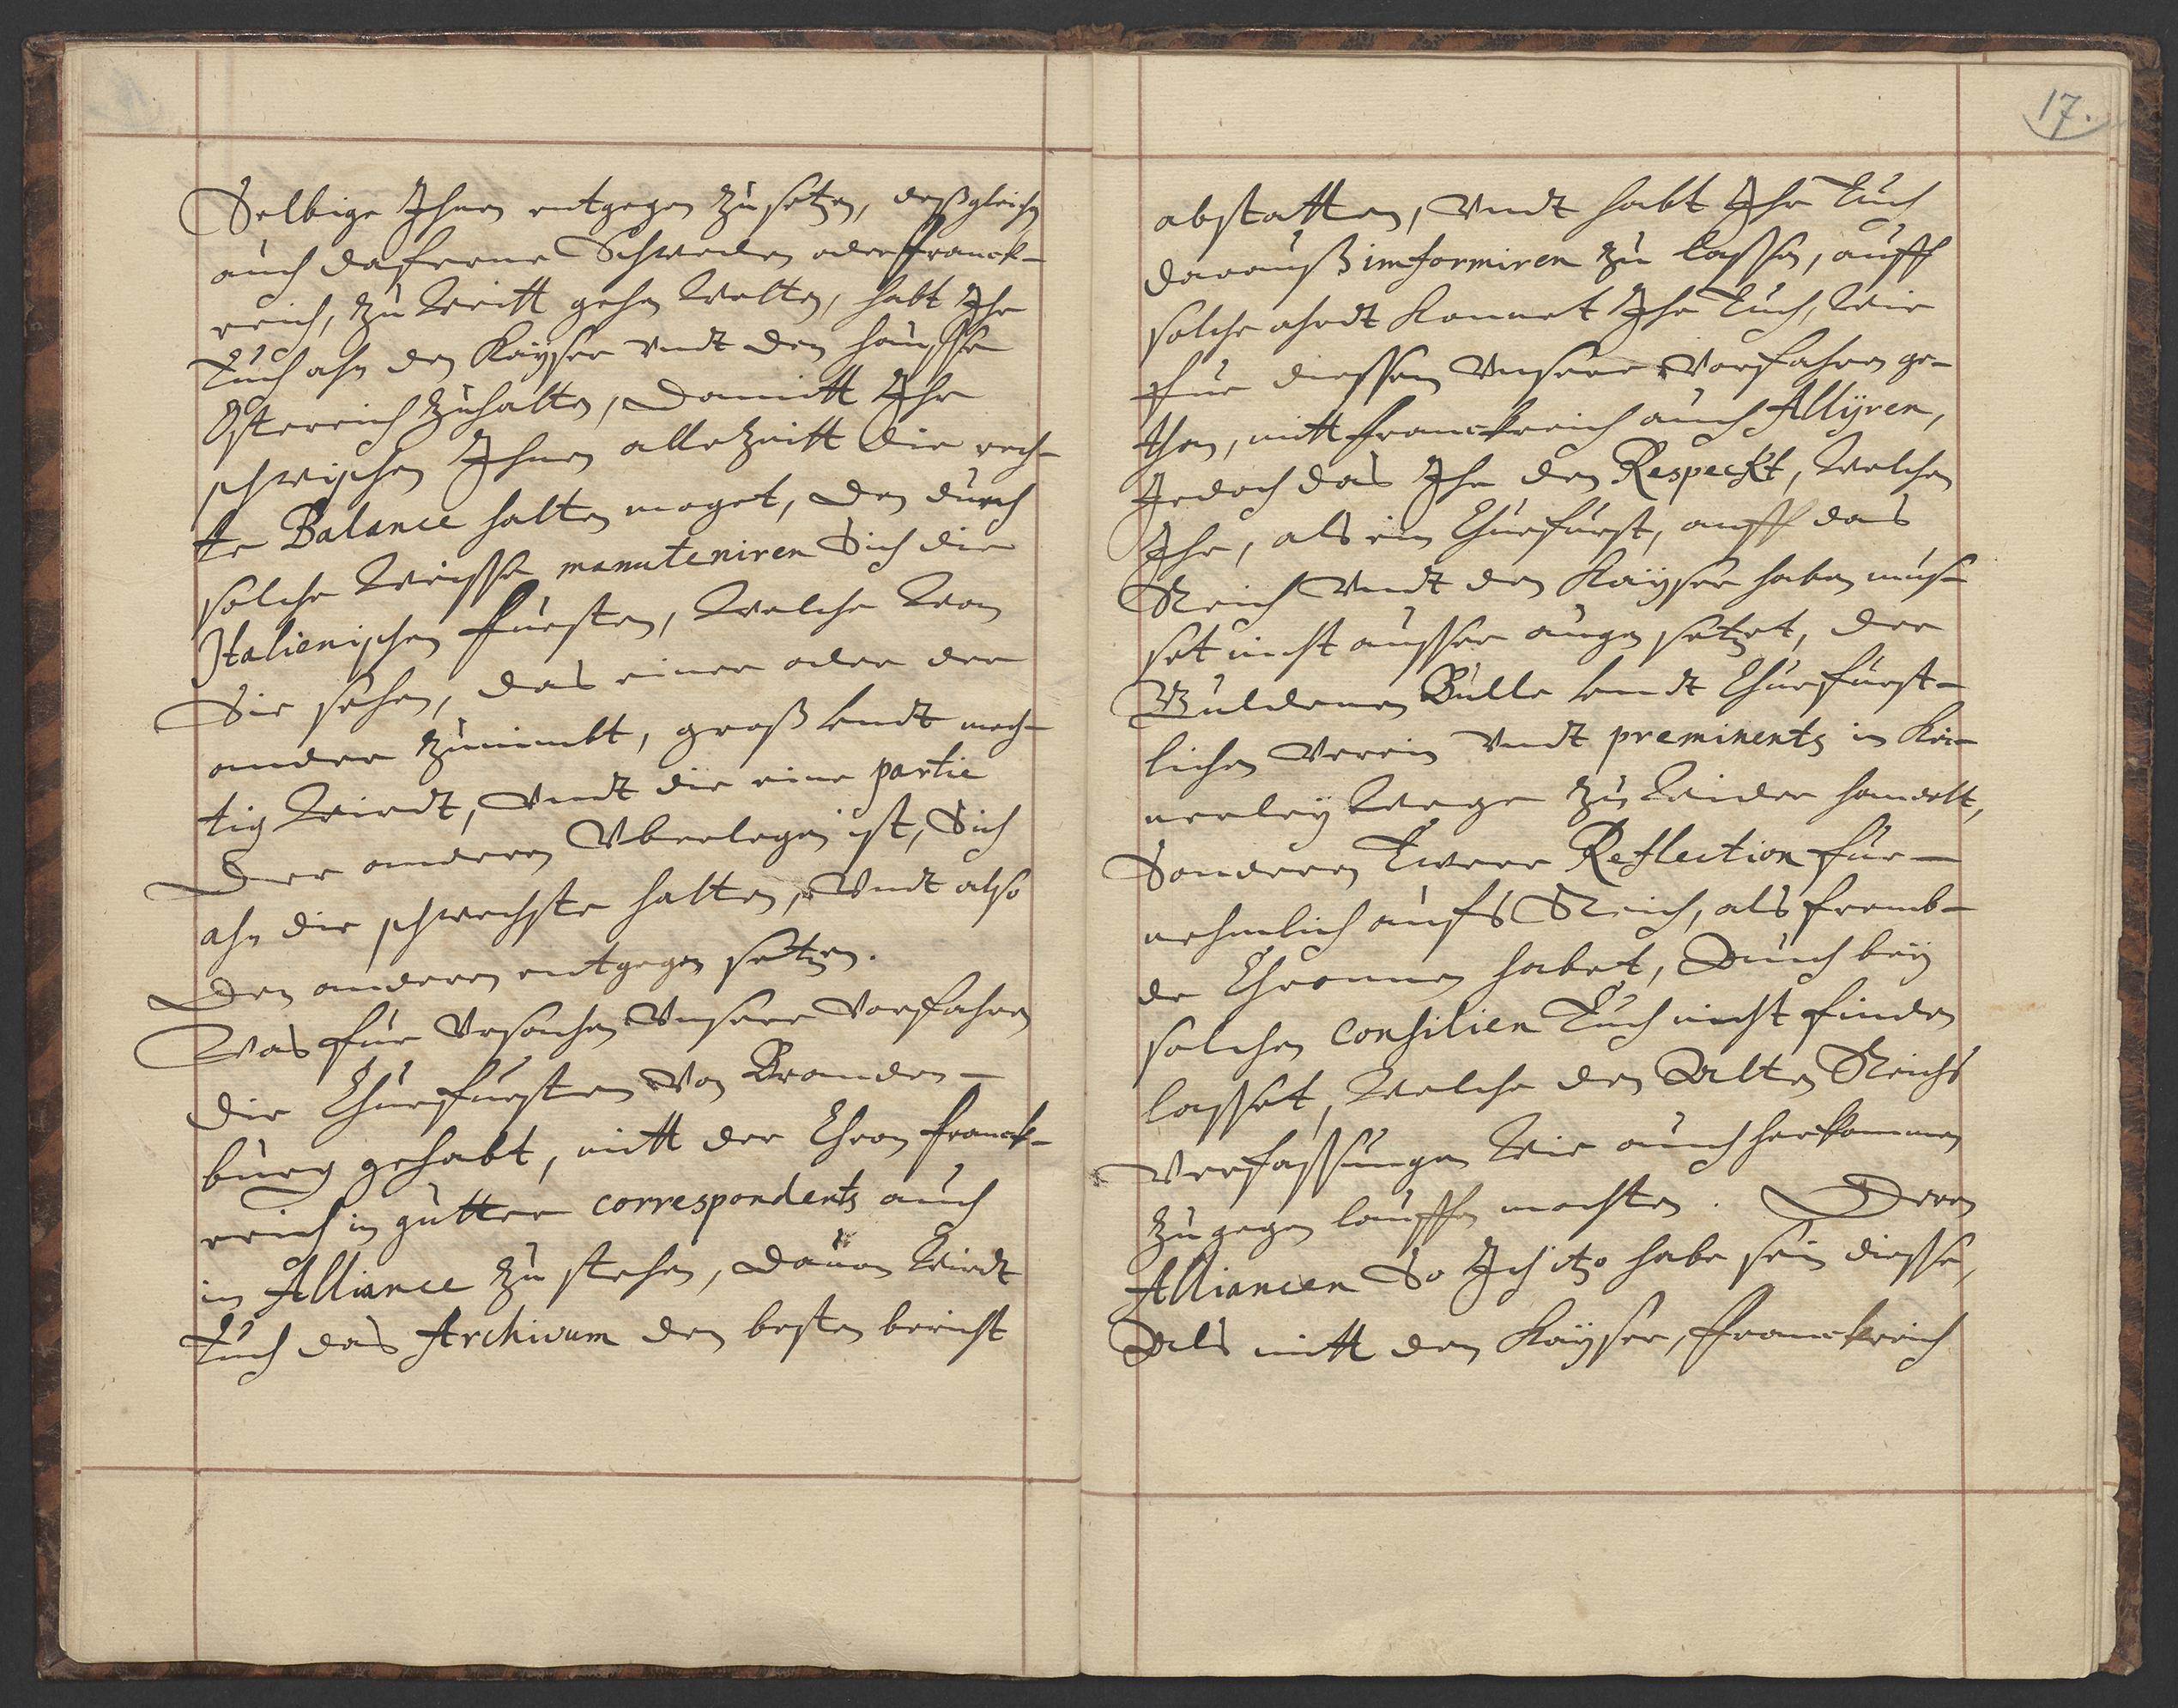 Selbige Ihnen entgegen zu setzen, deßgleichen
auch daferne Schweden oder Franck-
reich, zu weitt gehen wolten, habt Ihr
Euch ahn den Kayser undt den hausse
Osterreich zuhalten, damitt Ihr
schwischen Ihnen allezeitt die rech-
te Balance halten moget, den durch
solche weisse manuteniren Sich die
Italienischen Fürsten, welche wan
Sie sehen, das einer oder der
ander zunimbt, groß undt mech-
tig wirdt, undt die eine partie
der anderen Uberlegen ist, Sich
ahn die schwechste halten, undt also
den anderen entgegen setzen.
Was für Ursachen Unsere Vorfahren
die Churfürsten von Branden-
burg gehabt, mitt der Chron Franck-
reich in gutter correspondents auch
in Alliance zu stehen, dauon wirdt
Euch das Archivum den besten bericht
17.
abstatten, undt habt Ihr Euch
darauß imformiren zu lassen, auff
solche ahrdt konnet Ihr Euch, wie
fur diessem Unsere Vorfahren ge-
than, mitt Franckreich auch Allÿren,
Jedoch das Ihr den Respeckt, welchen
Ihr, als ein Churfürst, auff das
Reich undt den Kayser haben mus-
set nicht ausser augen setzet, der
Guldenen Bulle undt Churfürst-
lichen Verein undt preminents in Kei-
nerley wege zu wider handelt,
Sonderen Ewere Reflection für-
nehmlich aufs Reich, als fremb-
de Chronnen habet, Auch bey
solchen consilien Euch nicht finden
lasset, welche den Alten Reichs
Verfassungen wie auch herkommen
zu gegen lauffen mochten. Deren
Alliancen So Ich itzo habe sein diesse,
Als mitt den Kayser, Franckreich